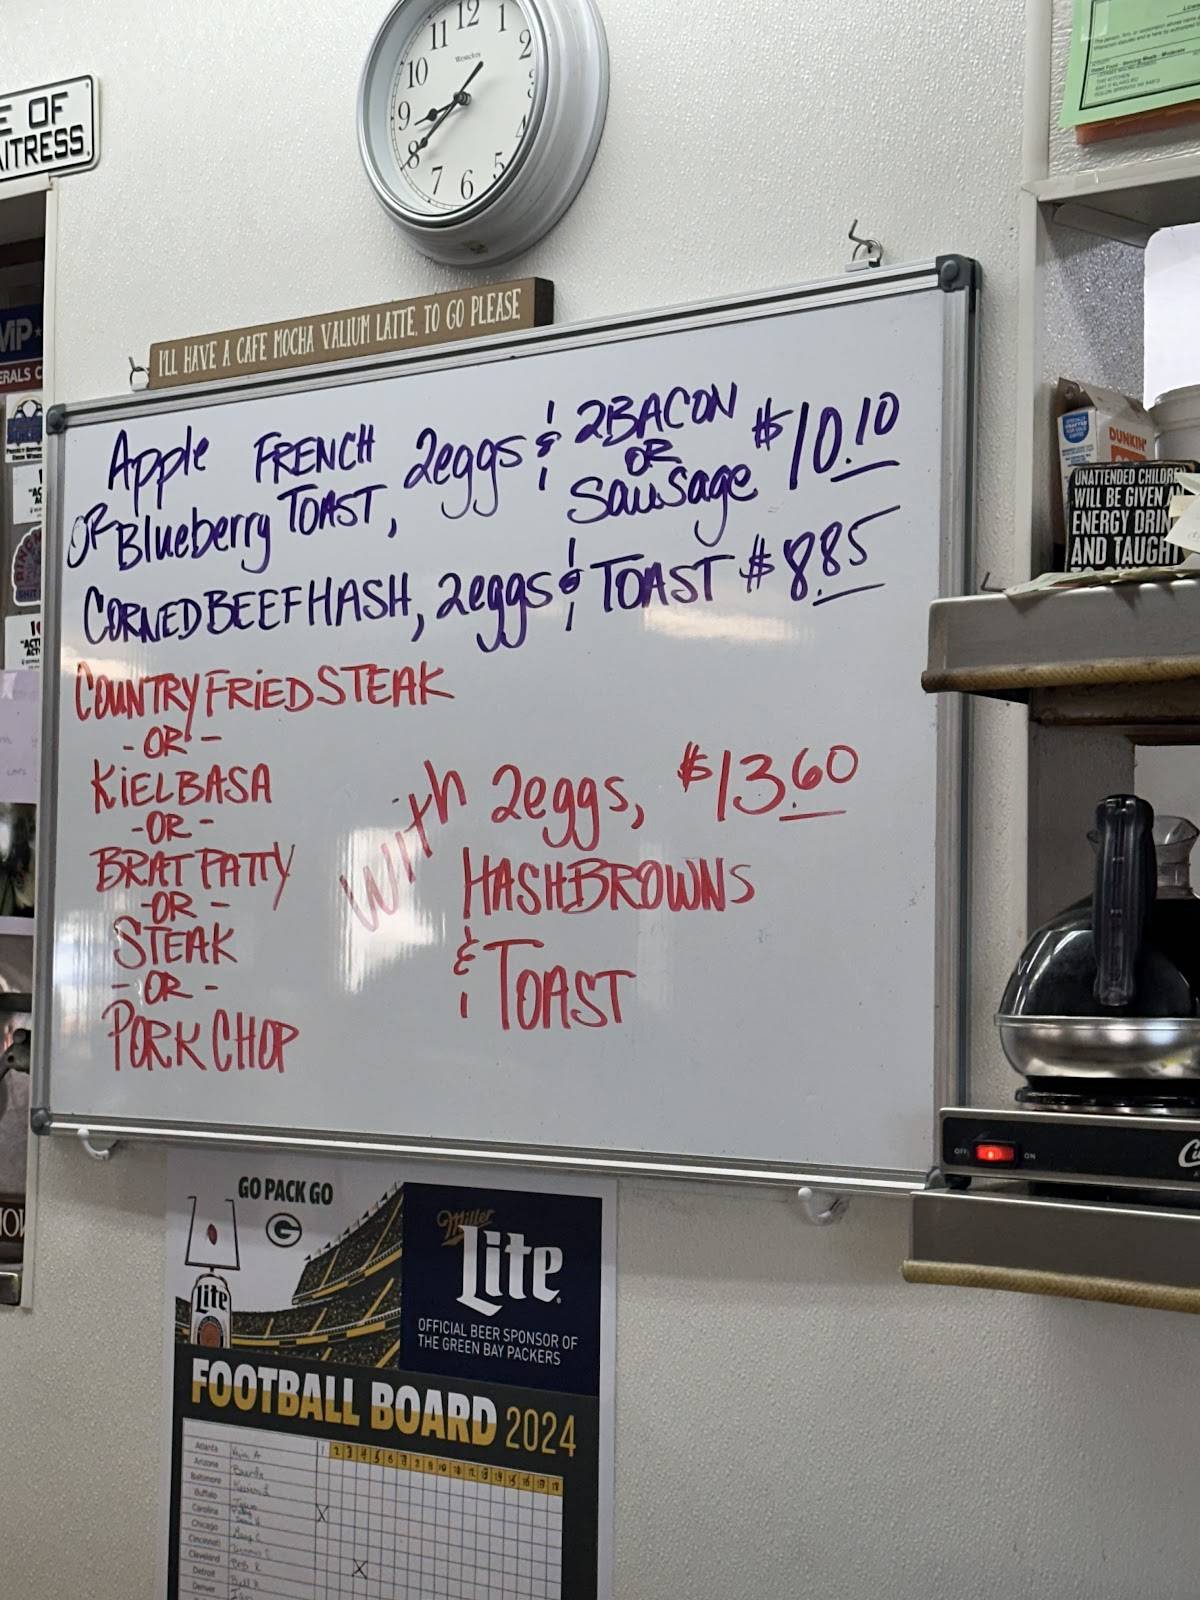 E OF
AITRESS
12
1
2
3
4
5
6
7
8
9
10
11
I'LL HAVE A CAFE MOCHA VALIUM LATTE, TO GO PLEASE
Apple FRENCH 2eggs & 2 BACON $10.10
OR Blueberry TOAST, OR Sausage
CORNED BEEF HASH, 2eggs & TOAST $8.85
COUNTRY FRIED STEAK
- OR -
KIELBASA
- OR -
BRAT PATTY
- OR -
STEAK
- OR -
PORK CHOP
WITH 2eggs, $13.60
HASHBROWNS
& TOAST
DUNKIN'
UNATTENDED CHILDRE
WILL BE GIVEN AN
ENERGY DRIN
AND TAUGHT
OFF ON
GO PACK GO
G
Lite
Miller
Lite
OFFICIAL BEER SPONSOR OF
THE GREEN BAY PACKERS
FOOTBALL BOARD 2024
1 2 3 4 5 6 7 8 9 10 11 12 13 14 15 16 17 18
Atlanta
Arizona
Baltimore
Buffalo
Carolina
Chicago
Cincinnati
Cleveland
Detroit
Denver